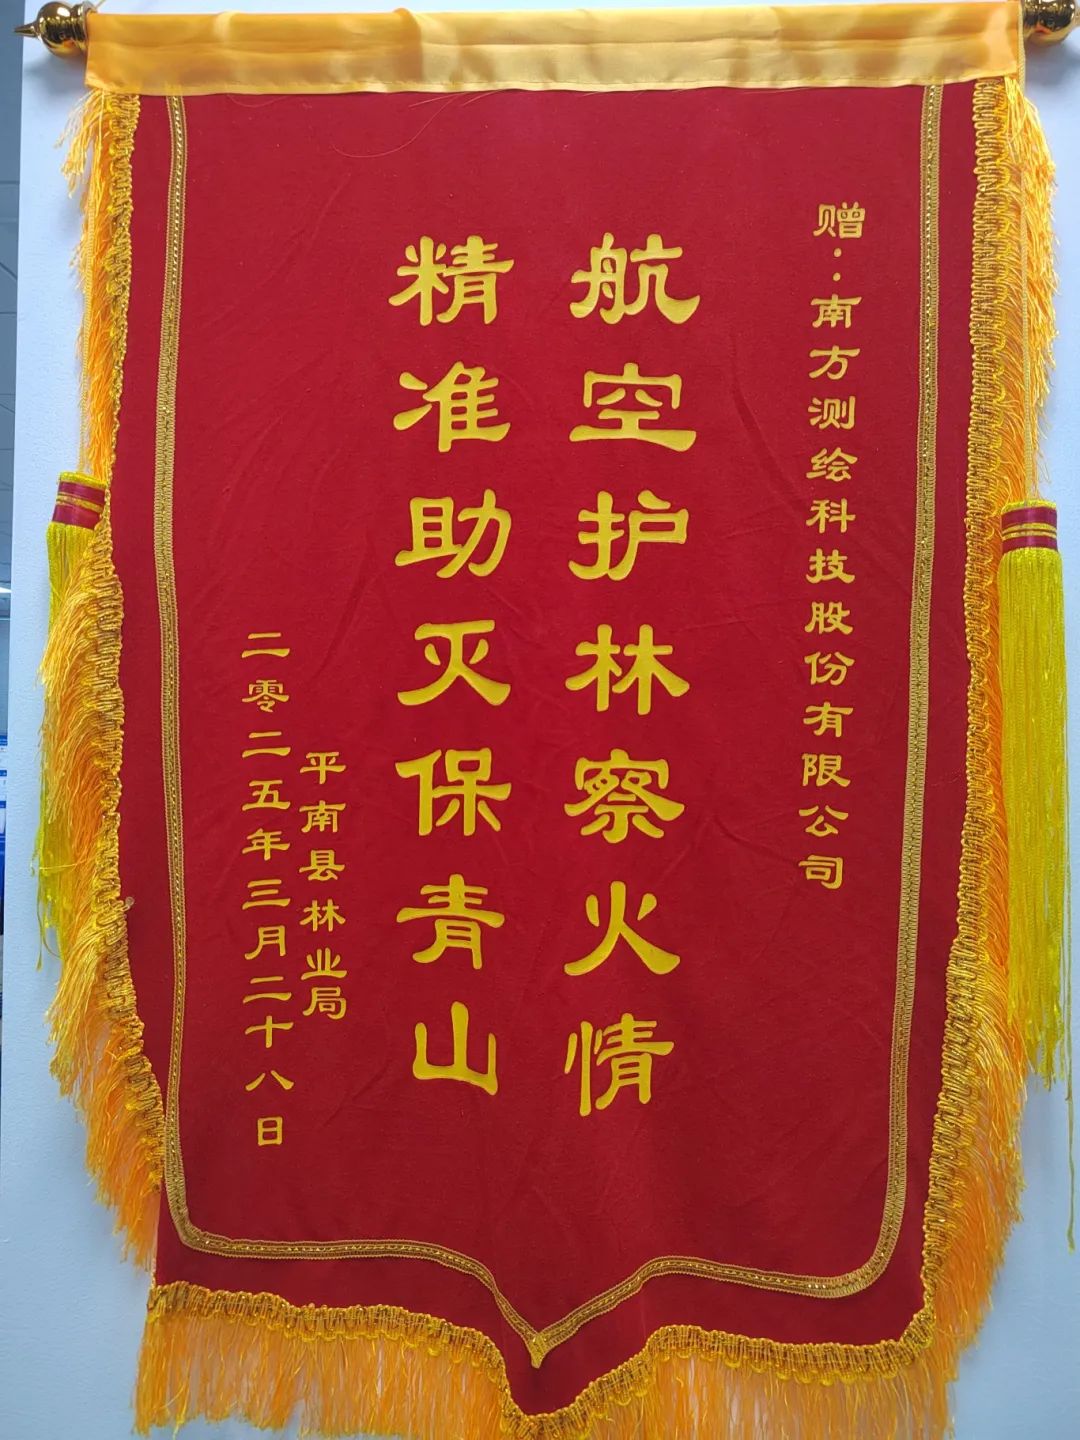 赠：南方测绘科技股份有限公司
航空护林察火情
精准助灭保青山
平南县林业局
二零二五年三月二十八日